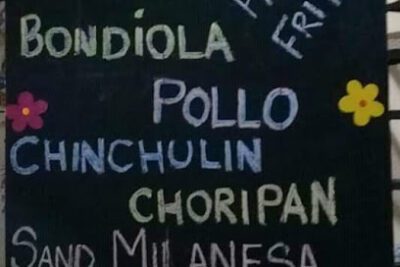 BONDÍOLA
POLLO
CHINCHULIN
CHORIPAN
SAND MILANESA